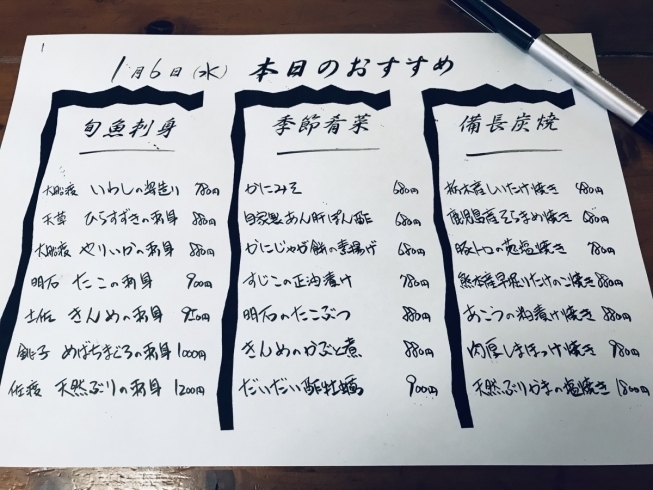 1
1月6日(水) 本日のおすすめ
旬魚刺身
いわしの姿造り 780円
天草 ひらすずきの刺身 880円
やりいかの刺身 880円
明石 たこの刺身 900円
土佐 きんめの刺身 950円
銚子 めばちまぐろの刺身 1000円
佐渡 天然ぶりの刺身 1200円
季節肴菜
かにみそ 680円
自家製あん肝ぽん酢 680円
かにじゃが餅の素揚げ 680円
すじこの正油漬け 780円
明石のたこぶつ 880円
きんめのかぶと煮 880円
だいだい酢牡蠣 900円
備長炭焼
栃木産しいたけ焼き 480円
鹿児島産そらまめ焼き 680円
豚トロの葱塩焼き 780円
熊本産早掘りたけのこ焼き 880円
あこうの粕漬け焼き 880円
肉厚しまほっけ焼き 980円
天然ぶりかまの塩焼き 1800円